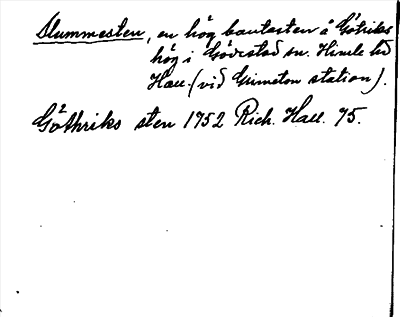 Slummesten, en hög bautasten å Götriks
hög i Gödestad sn. Himle hd
Hall. (vid Grimeton station).
Göthriks sten 1752 Rich. Hall. 75.